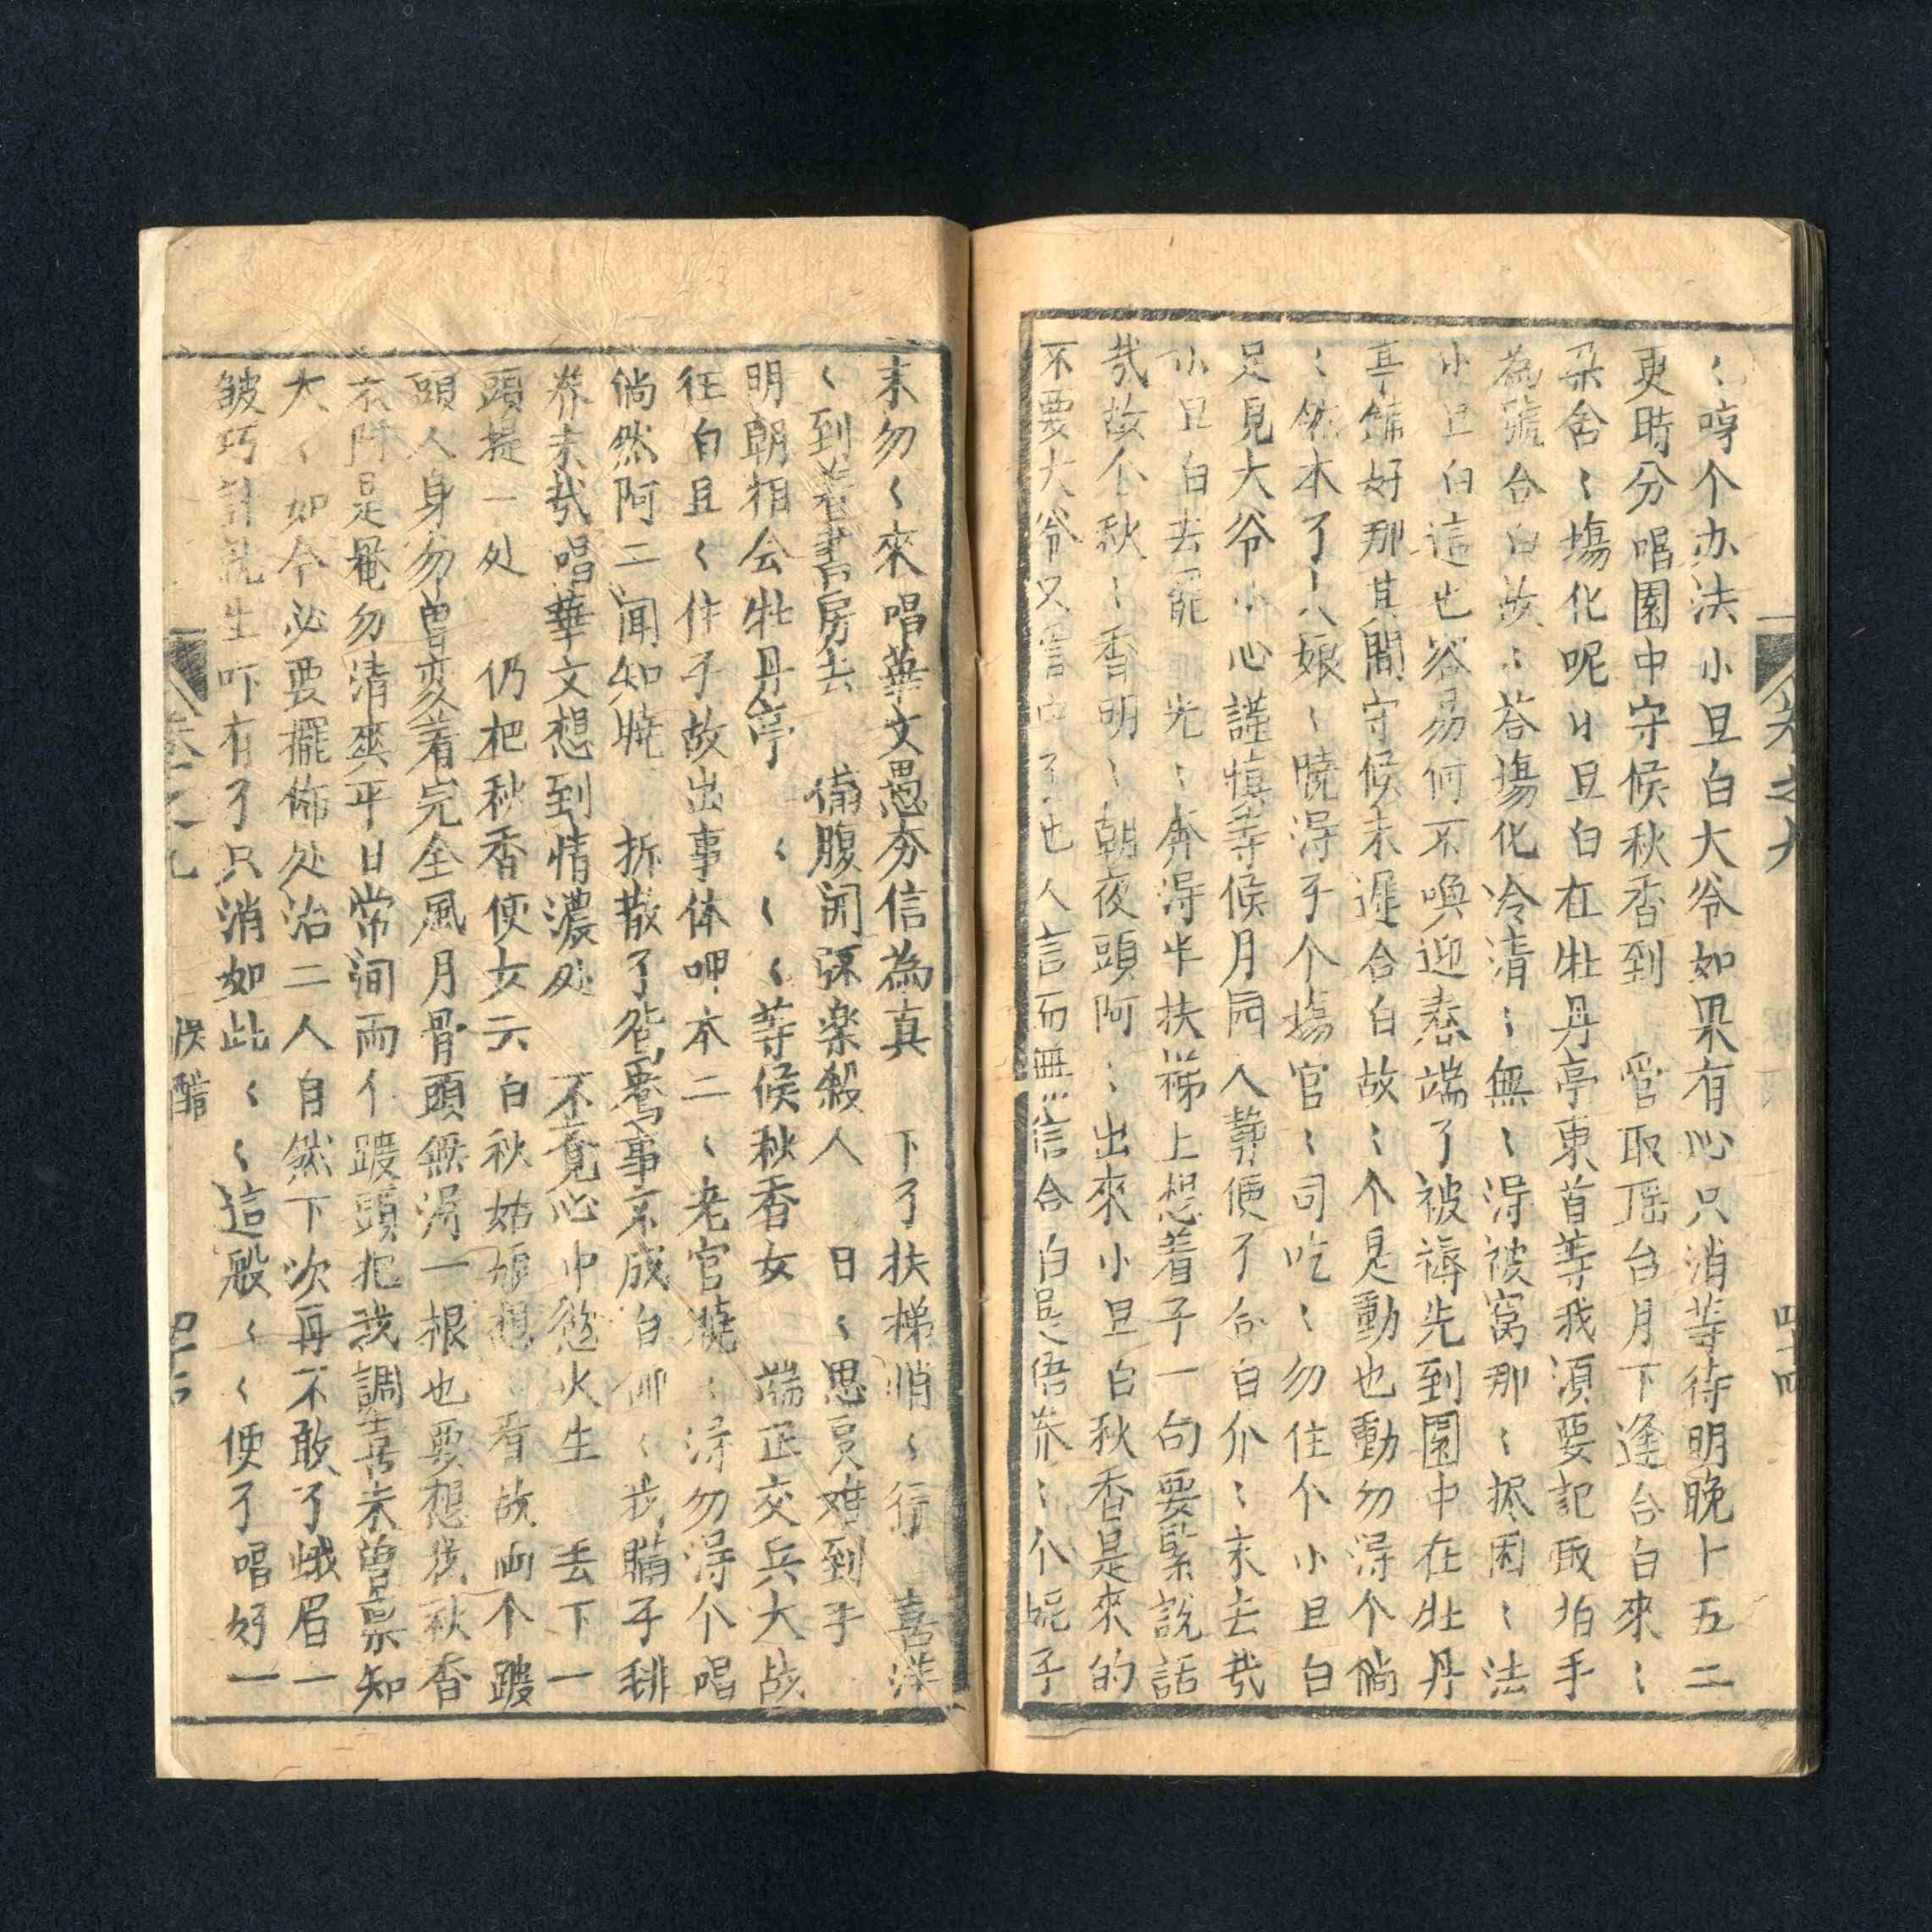 〻哼个办法小旦白大爷如果有心只消等待明晚十五二
更時分唱園中守候秋香到 管取瑶台月下逢合白來〻
朵舍〻塲化呢小旦白在牡丹亭東首等我須要記取拍手
為號合白故〻荅塲化冷清〻無〻淂被窩那〻掀困〻法
小旦白這也容易何不喚迎春端了被褥先到園中在牡丹
亭舖好那其間守候未遲合白故〻个是動也動勿淂个倘
〻然本了大娘〻曉淂子个塲官〻司吃〻勿住个小旦白
足見大爷小心謹慎等候月园人静便了合白介〻末去哉
小旦白去罷 光〻奔淂半扶梯上想着子一句要緊說話
哉故个秋〻香明〻朝夜頭阿〻出來小旦白秋香是來的
不要大爷又言中了也人言而無信合白是悟 〻个妮子
卷之九
末勿〻來唱華文愚夯信為真 下了扶梯悄〻行 喜洋
〻到着書房去 俻腹闲 楽殺人 日〻思良难到手
明朝相会牡丹亭 〻〻〻等候秋香女 端正交兵大战
徃白且〻住子故出事体呷本二〻老官曉〻淂勿淂个唱
倘然阿二闻知曉 拆散了鸳鴦事不成白 〻我瞞子
 末哉唱華文想到情濃处 不覚心中慾火生 丢下一
頭提一处 仍把秋香使女云白秋姑娘想〻看故両个踱
頭人身勿曽变着完全風月骨頭無淂一根也要想我秋香
 是罨勿清爽平日常间両个踱頭把我調喜未曽禀知
太〻如今必要擺佈处治二人自然下次再不敢了蛾眉一
皱巧計就生吓有了只消如此〻〻這般〻〻便了唱好一
卷之九 醋